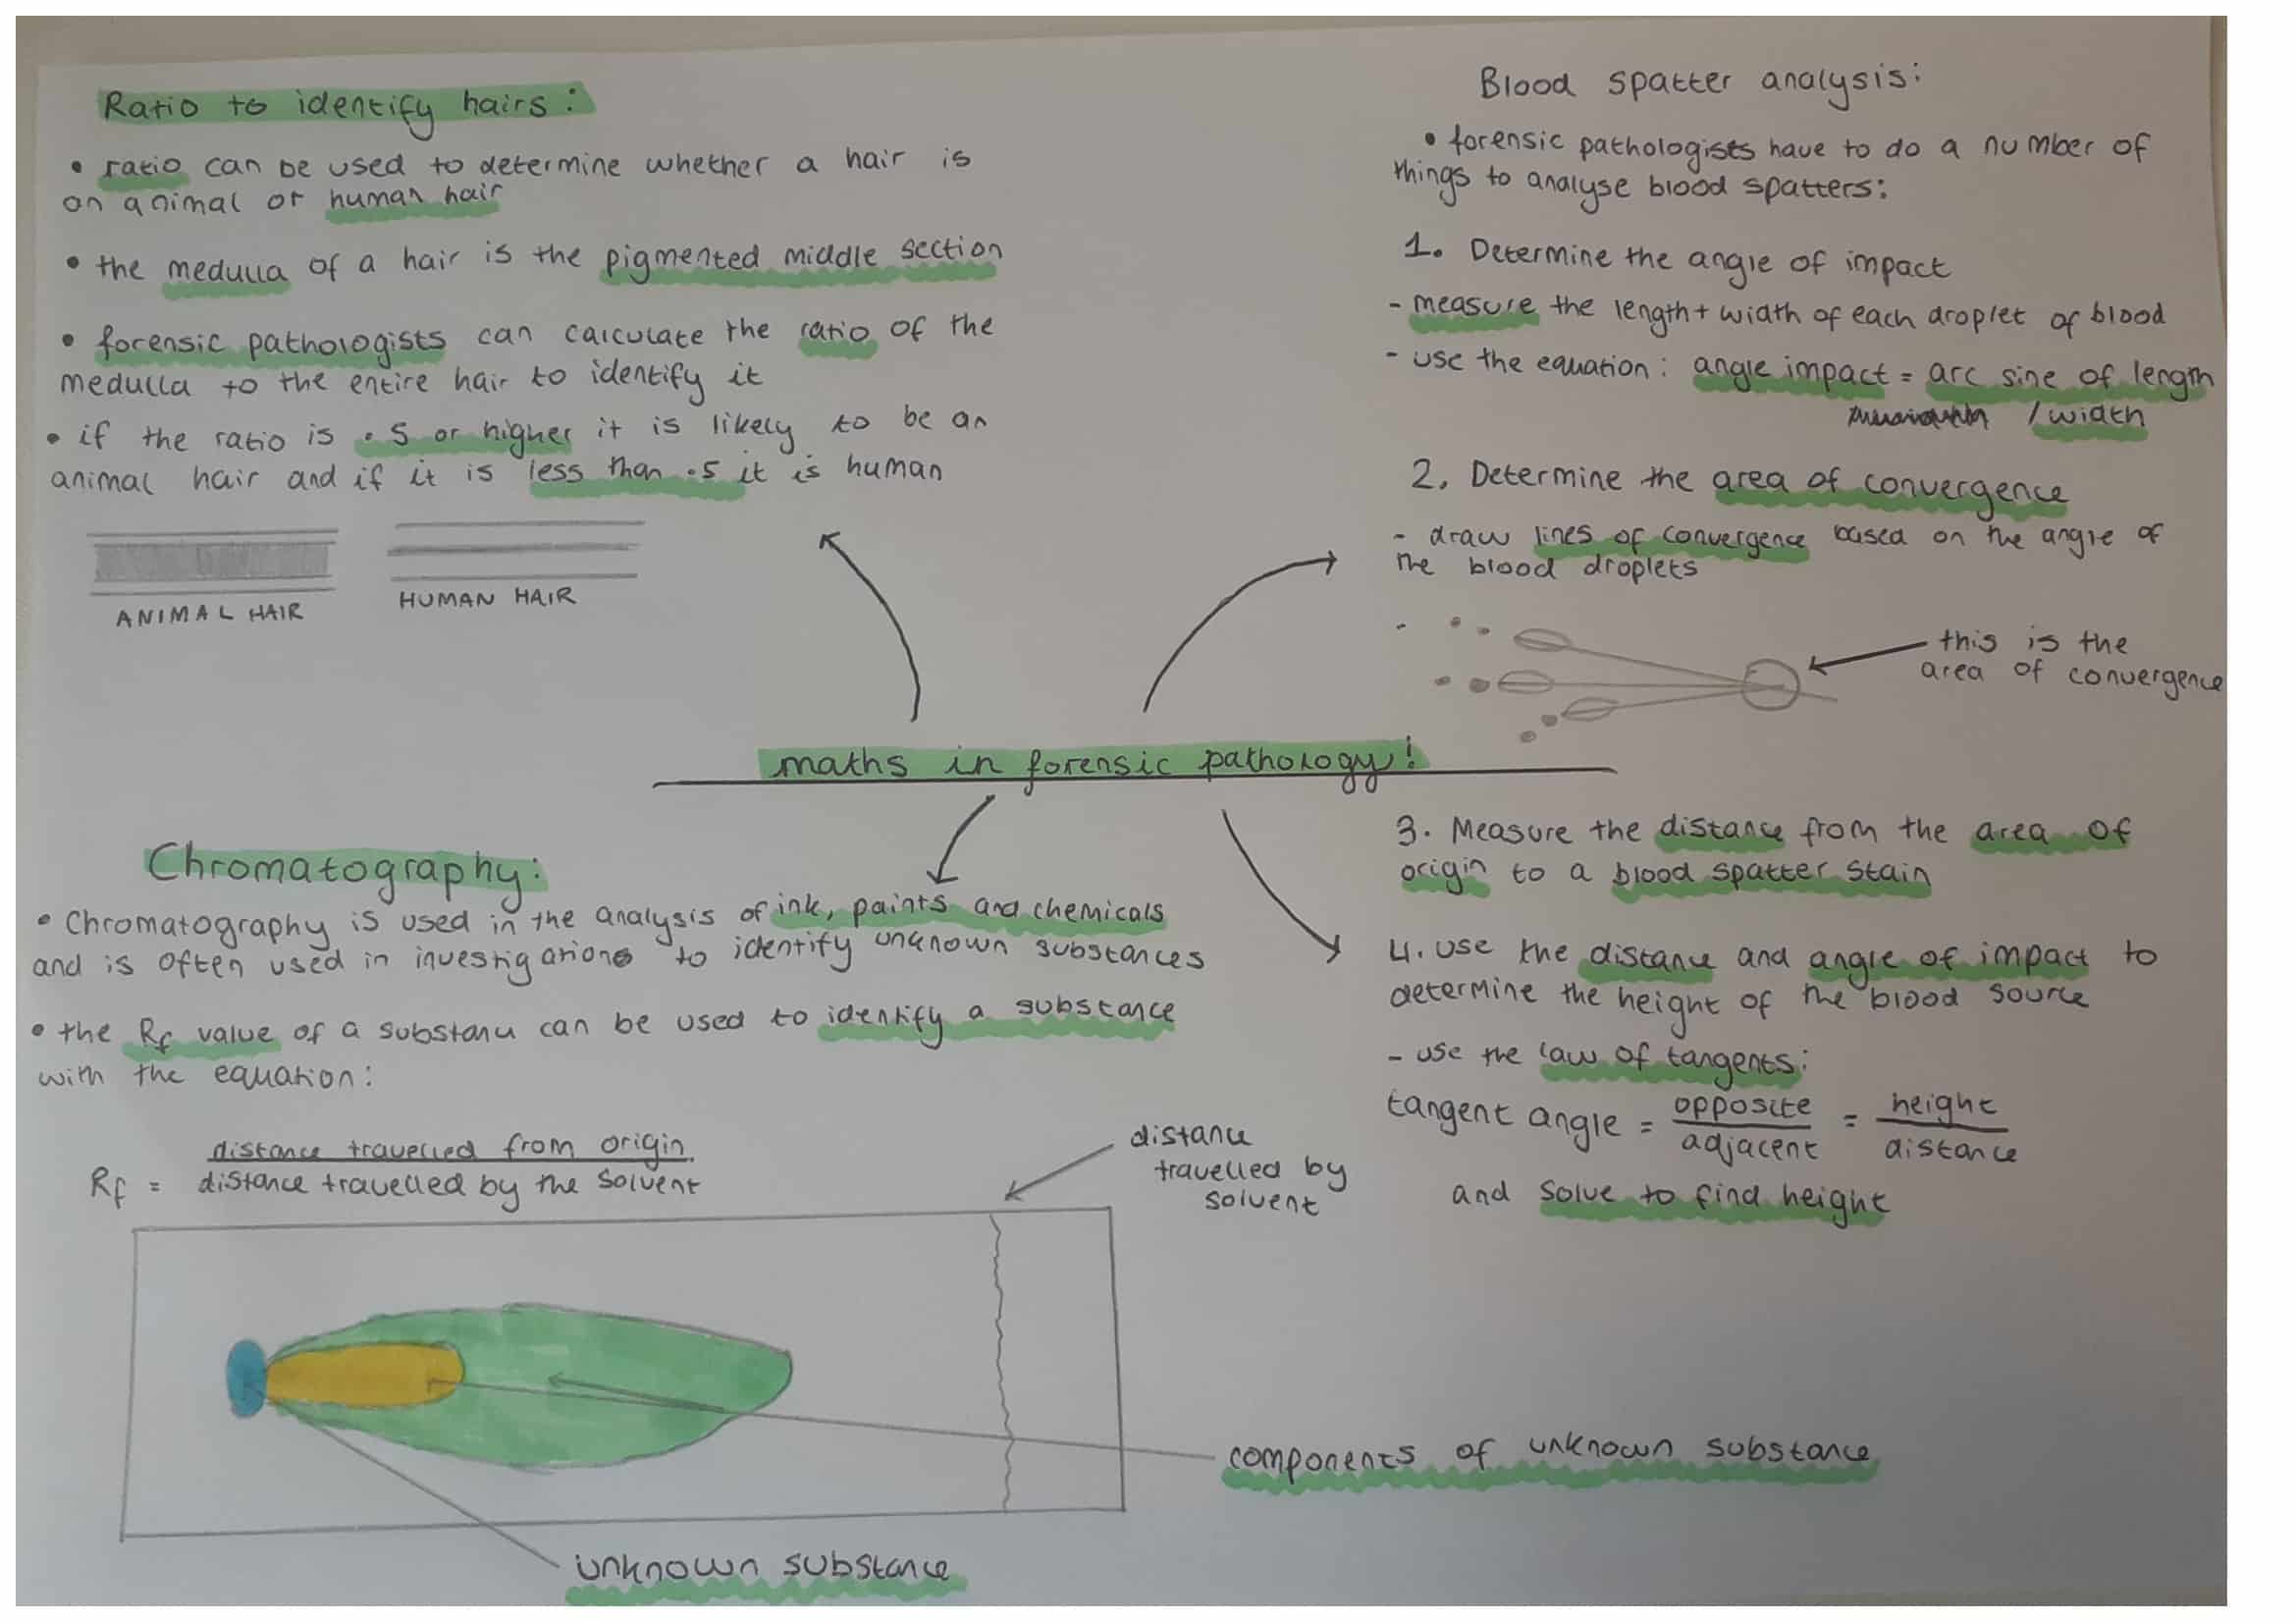 Ratio to identify hairs:
• ratio can be used to determine whether a hair is
an animal or human hair
• the medulla of a hair is the pigmented middle section
• forensic pathologists can calculate the ratio of the
medulla to the entire hair to identify it
• if the ratio is .5 or higher it is likely to be an
animal hair and if it is less than .5 it is human
ANIMAL HAIR
HUMAN HAIR
Blood spatter analysis:
• forensic pathologists have to do a number of
things to analyse blood spatters:
1. Determine the angle of impact
- measure the length + width of each droplet of blood
- use the equation: angle impact = arc sine of length
/width
2. Determine the area of convergence
- draw lines of convergence based on the angle of
the blood droplets
this is the
area of convergence
maths in forensic pathology!
3. Measure the distance from the area of
origin to a blood spatter stain
4. use the distance and angle of impact to
determine the height of the blood source
- use the law of tangents:
tangent angle = opposite/adjacent = height/distance
and solve to find height
Chromatography:
• Chromatography is used in the analysis of ink, paints and chemicals
and is often used in investigations to identify unknown substances
• the Rf value of a substance can be used to identify a substance
with the equation:
Rf = distance travelled from origin / distance travelled by the solvent
distance
travelled by
solvent
components of unknown substance
unknown substance